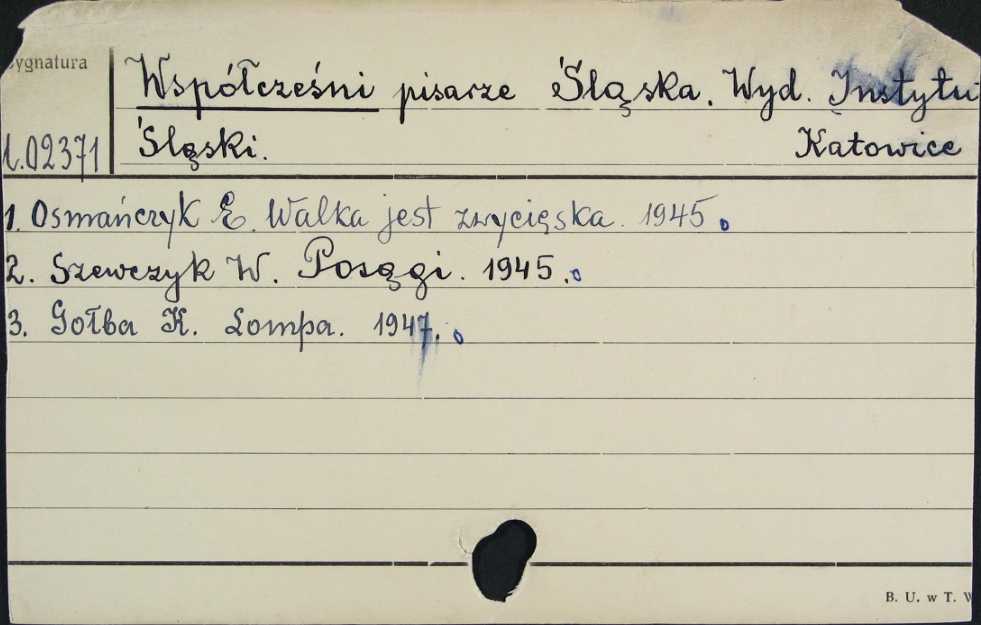 Sygnatura
Współcześni pisarze Śląska. Wyd. Instytu
Śląski. Katowice
1.02371
1. Osmańczyk E. Walka jest zwycięska. 1945.
2. Szewczyk W. Posągi. 1945.
3. Gołba K. Lompa. 1947.
B. U. w T. W